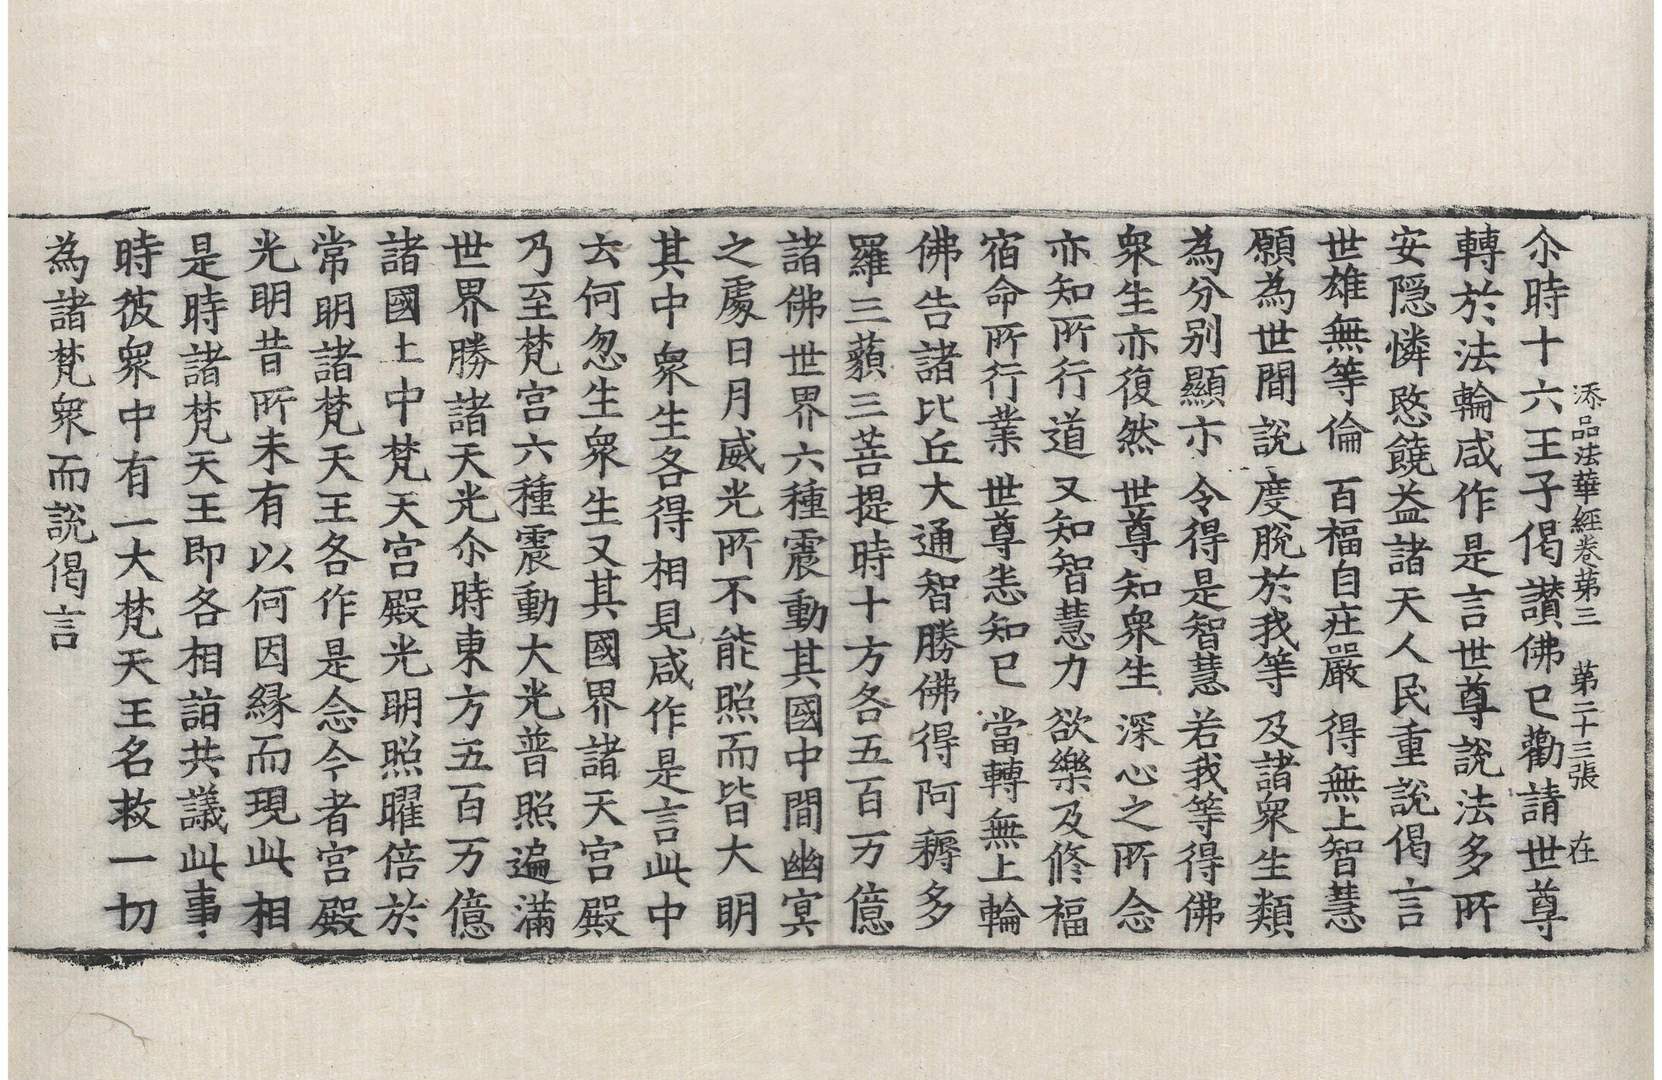 添品法華經卷第三 第二十三張 在
尒時十六王子偈讃佛已勸請世尊
轉於法輪咸作是言世尊說法多所
安隱憐愍饒益諸天人民重說偈言
世雄無等倫 百福自莊嚴 得無上智慧
願為世間說 度脫於我等 及諸衆生類
為分别顯示 令得是智慧 若我等得佛
衆生亦復然 世尊知衆生 深心之所念
亦知所行道 又知智慧力 欲樂及修福
宿命所行業 世尊悉知已 當轉無上輪
佛告諸比丘大通智勝佛得阿耨多
羅三藐三菩提時十方各五百万億
諸佛世界六種震動其國中間幽冥
之處日月威光所不能照而皆大明
其中衆生各得相見咸作是言此中
云何忽生衆生又其國界諸天宫殿
乃至梵宫六種震動大光普照遍滿
世界勝諸天光尒時東方五百万億
諸國土中梵天宫殿光明照曜倍於
常明諸梵天王各作是念今者宫殿
光明昔所未有以何因緣而現此相
是時諸梵天王即各相詣共議此事
時彼衆中有一大梵天王名救一切
為諸梵衆而說偈言